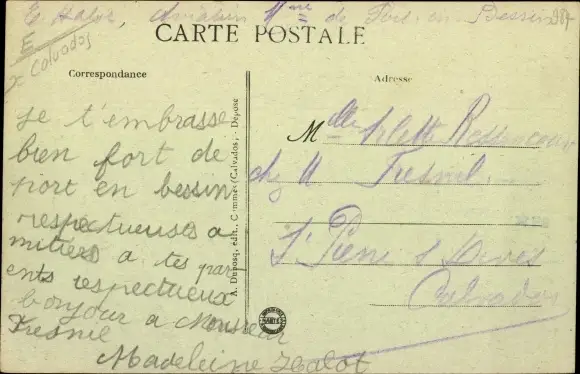 E. Halot, Mme de Port en Bessin
E
x Calvados
CARTE POSTALE
Correspondance
Adresse
Je t'embrasse
bien fort de
port en bessin
respectueuses a
mitiers a tes par
ents respectueux
bonjour a Monsieur
Fresnil
Madeleine Halot
A. Dubosq, édit., Commes (Calvados). - Déposé
Mlle Arlette
chez M Fresnil
St Pierre s Dives
Calvados